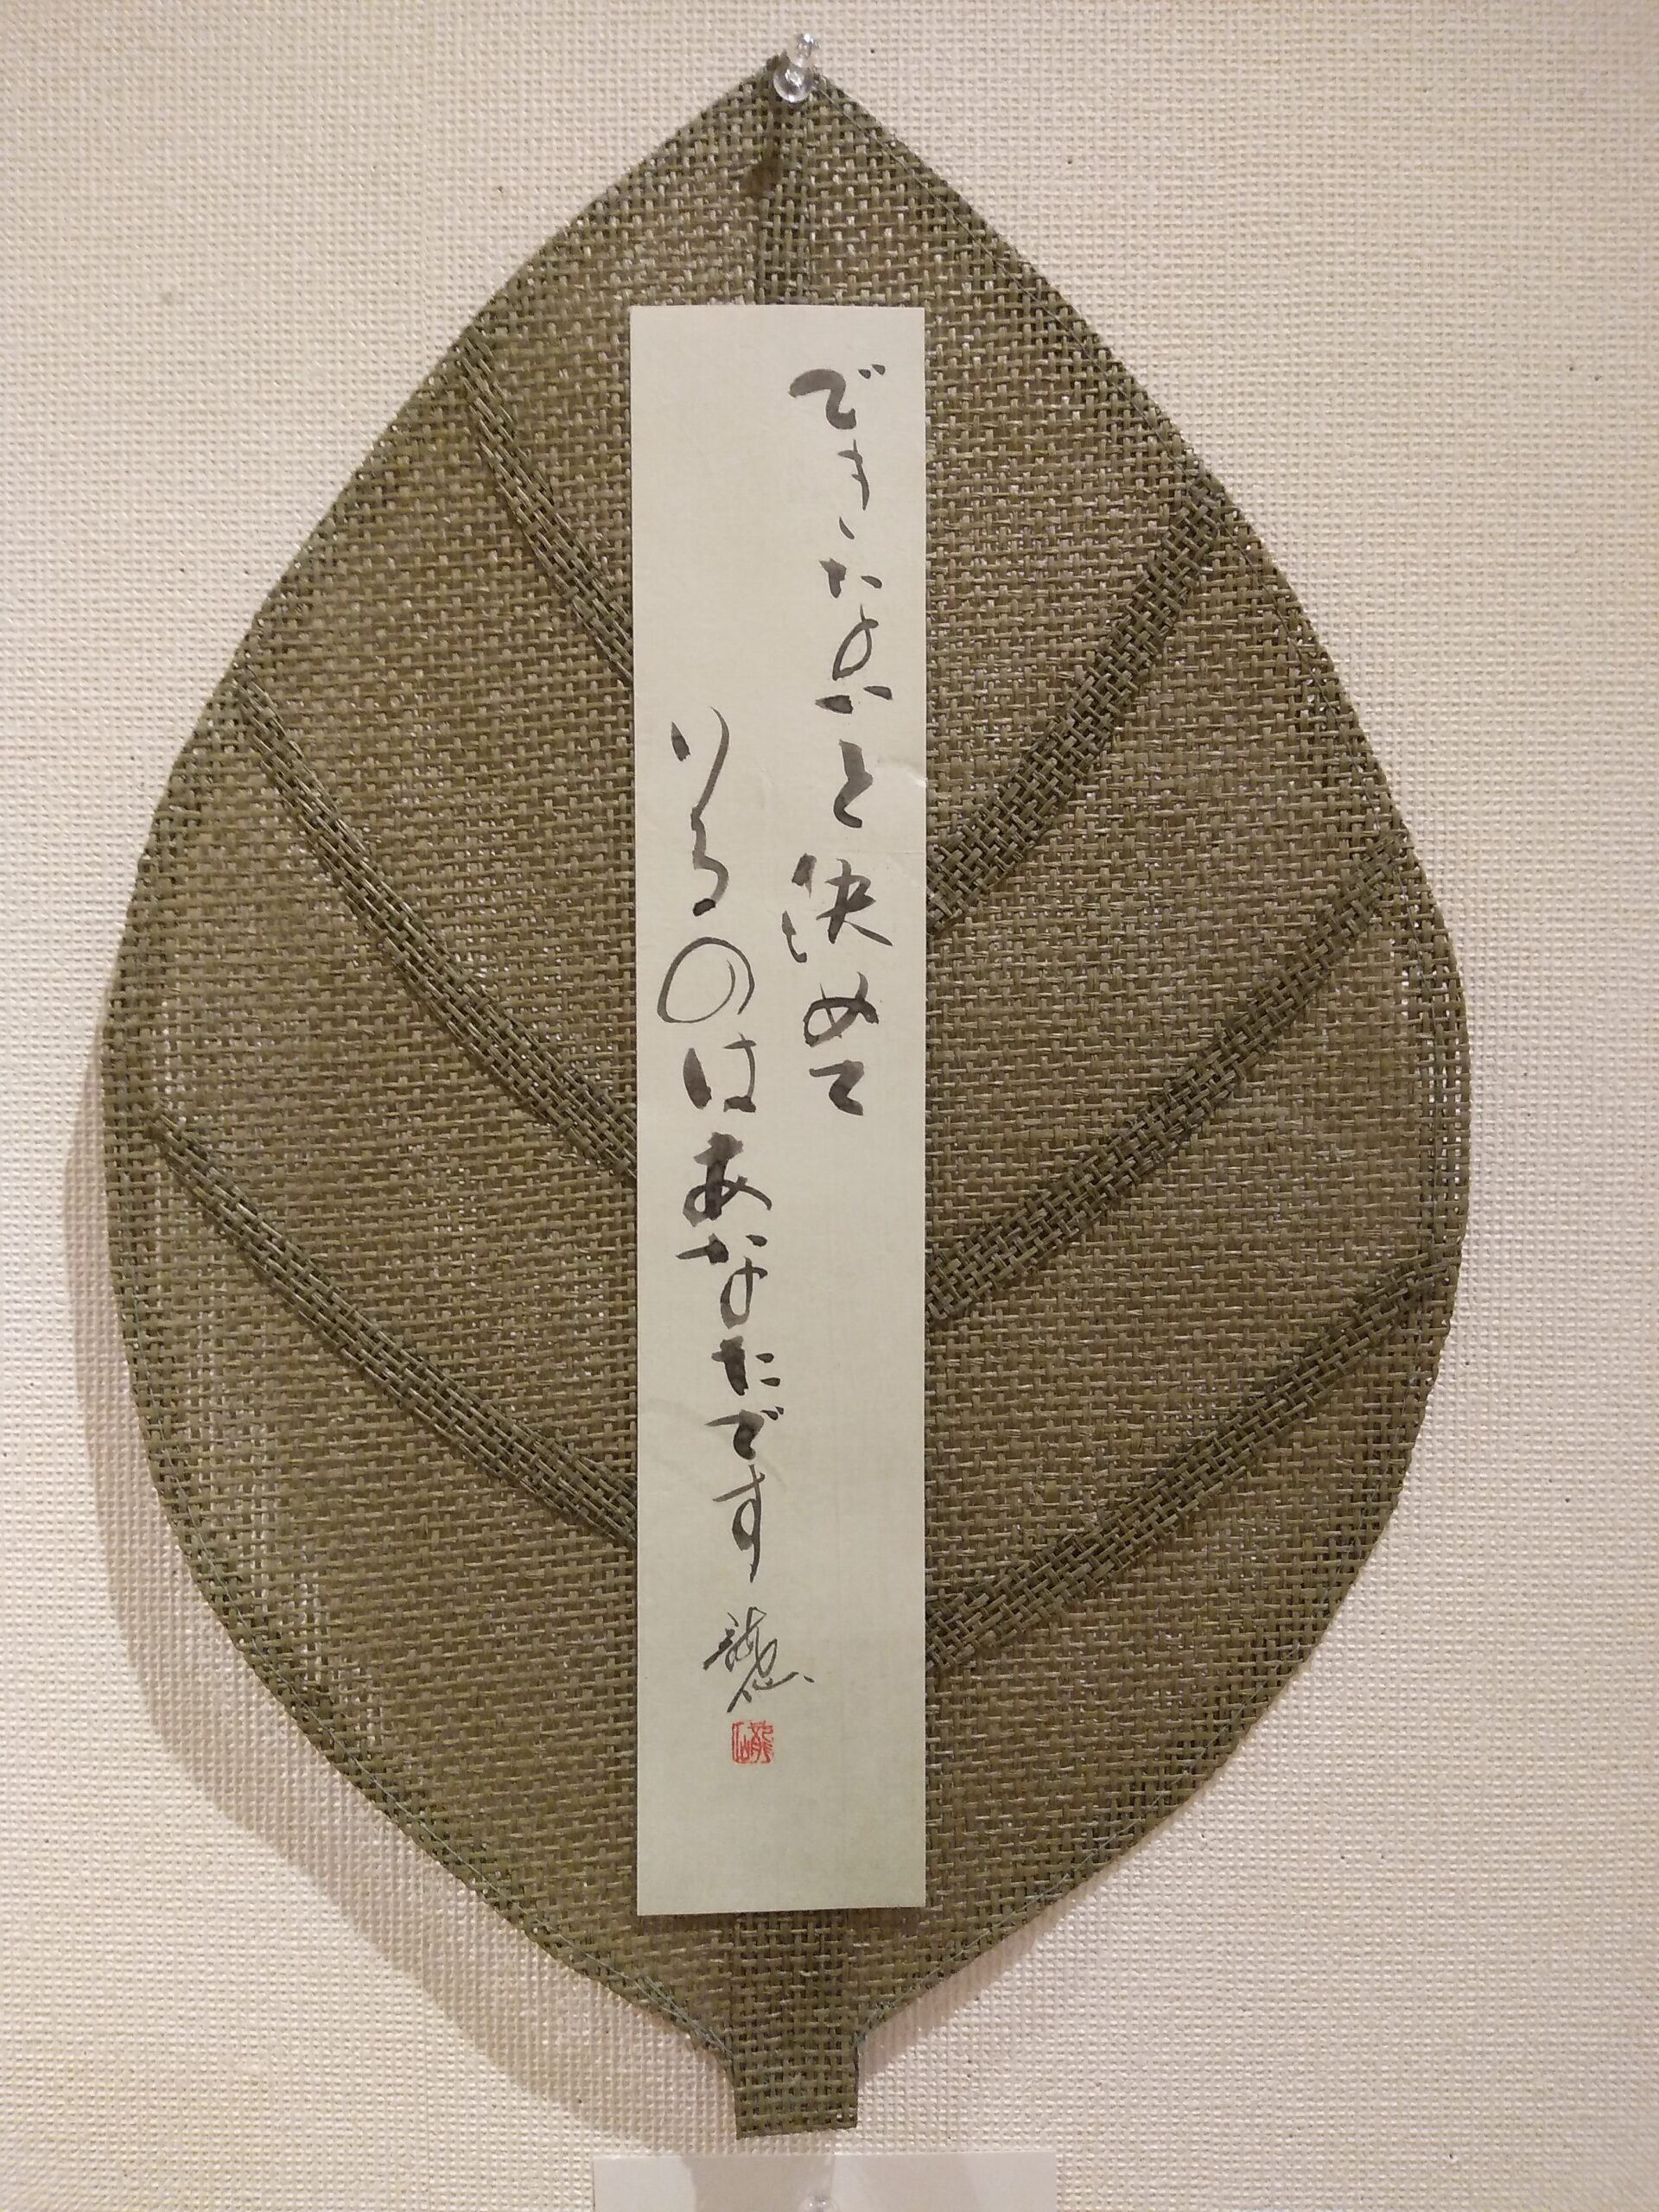 できないと決めて
いるのはあなたです